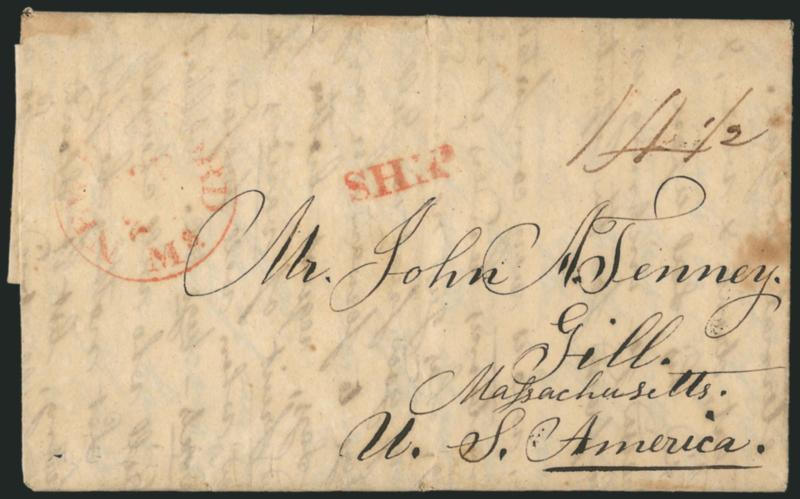 SHIP
Ms.
Mr. John A. Tenney.
Gill.
Massachusetts.
U. S. America.